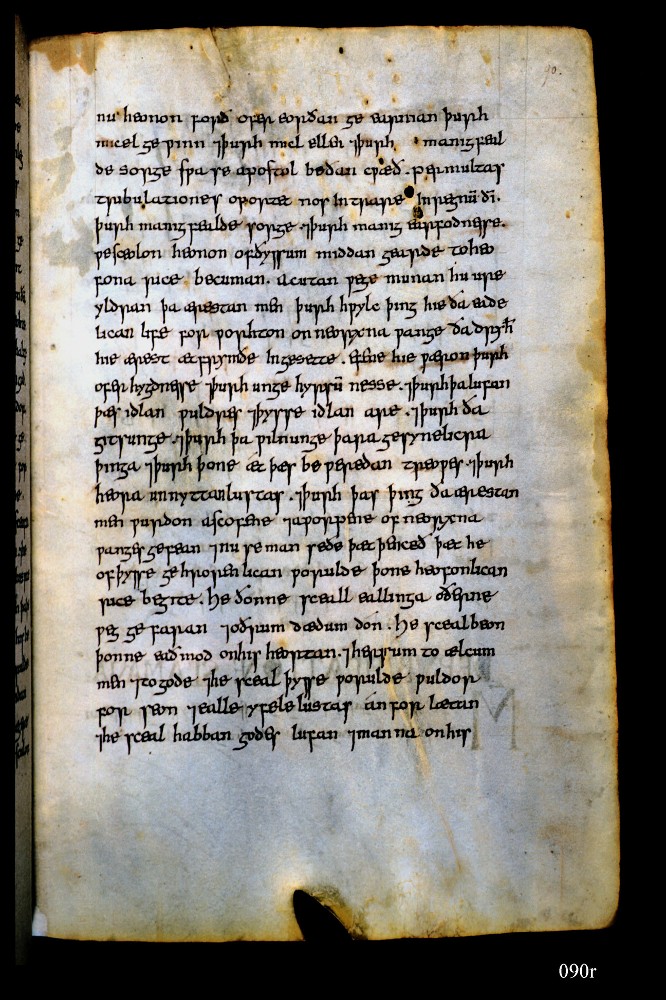 90.
nu heonon forð ofer eorðan ge earnian þurh
micel ge winn ⁊þurh micl ellen ⁊þurh manigfeal
de sorge swa se apostol bedan cwæð . per multas
tribulationes oportet nos Intrare Inregnū dī.
þurh manigfealde sorge ⁊þurh manig earfodnesse.
we sceolon heonon ofðyssum middan gearde to heo
fona rice becuman. Acutan wege munan hu ure
yldran þa ærestan men þurh hwylc þing hie ða eade
lican life for worhton on neorxna wange ða dryhꞇ̄
hie ærest æt frymðe Ingesette. hie wæron þurh
ofer hygdnesse ⁊þurh unge hyrsū nesse. ⁊þurh þa lufan
þæs idlan wuldres ⁊þysse idlan are . ⁊þurh ða
gitsunge ⁊þurh þa wilnunge þara gesynelicra
þinga ⁊þurh þone æt þæs be weredan treowes ⁊þurh
heora unnyttanlustas . ⁊þurh þas þing ða ærestan
men wurdon ascofene ⁊aworpene of neorxna
wanges gefean ⁊nu se man seðe þæt þenceð þæt he
of þysse gehrorenlican worulde þone heofonlican
rice begite. he ðonne sceall eallinga oðerne
weg ge faran ⁊oðrum dædum don. he sceal beon
þonne eaðmod onhis heortan. ⁊hersum to ælcum
men ⁊to gode ⁊he sceal þysse worulde wuldor
for seon ⁊ealle yfele lustas anforlætan
⁊he sceal habban godes lufan ⁊manna onhis
090r